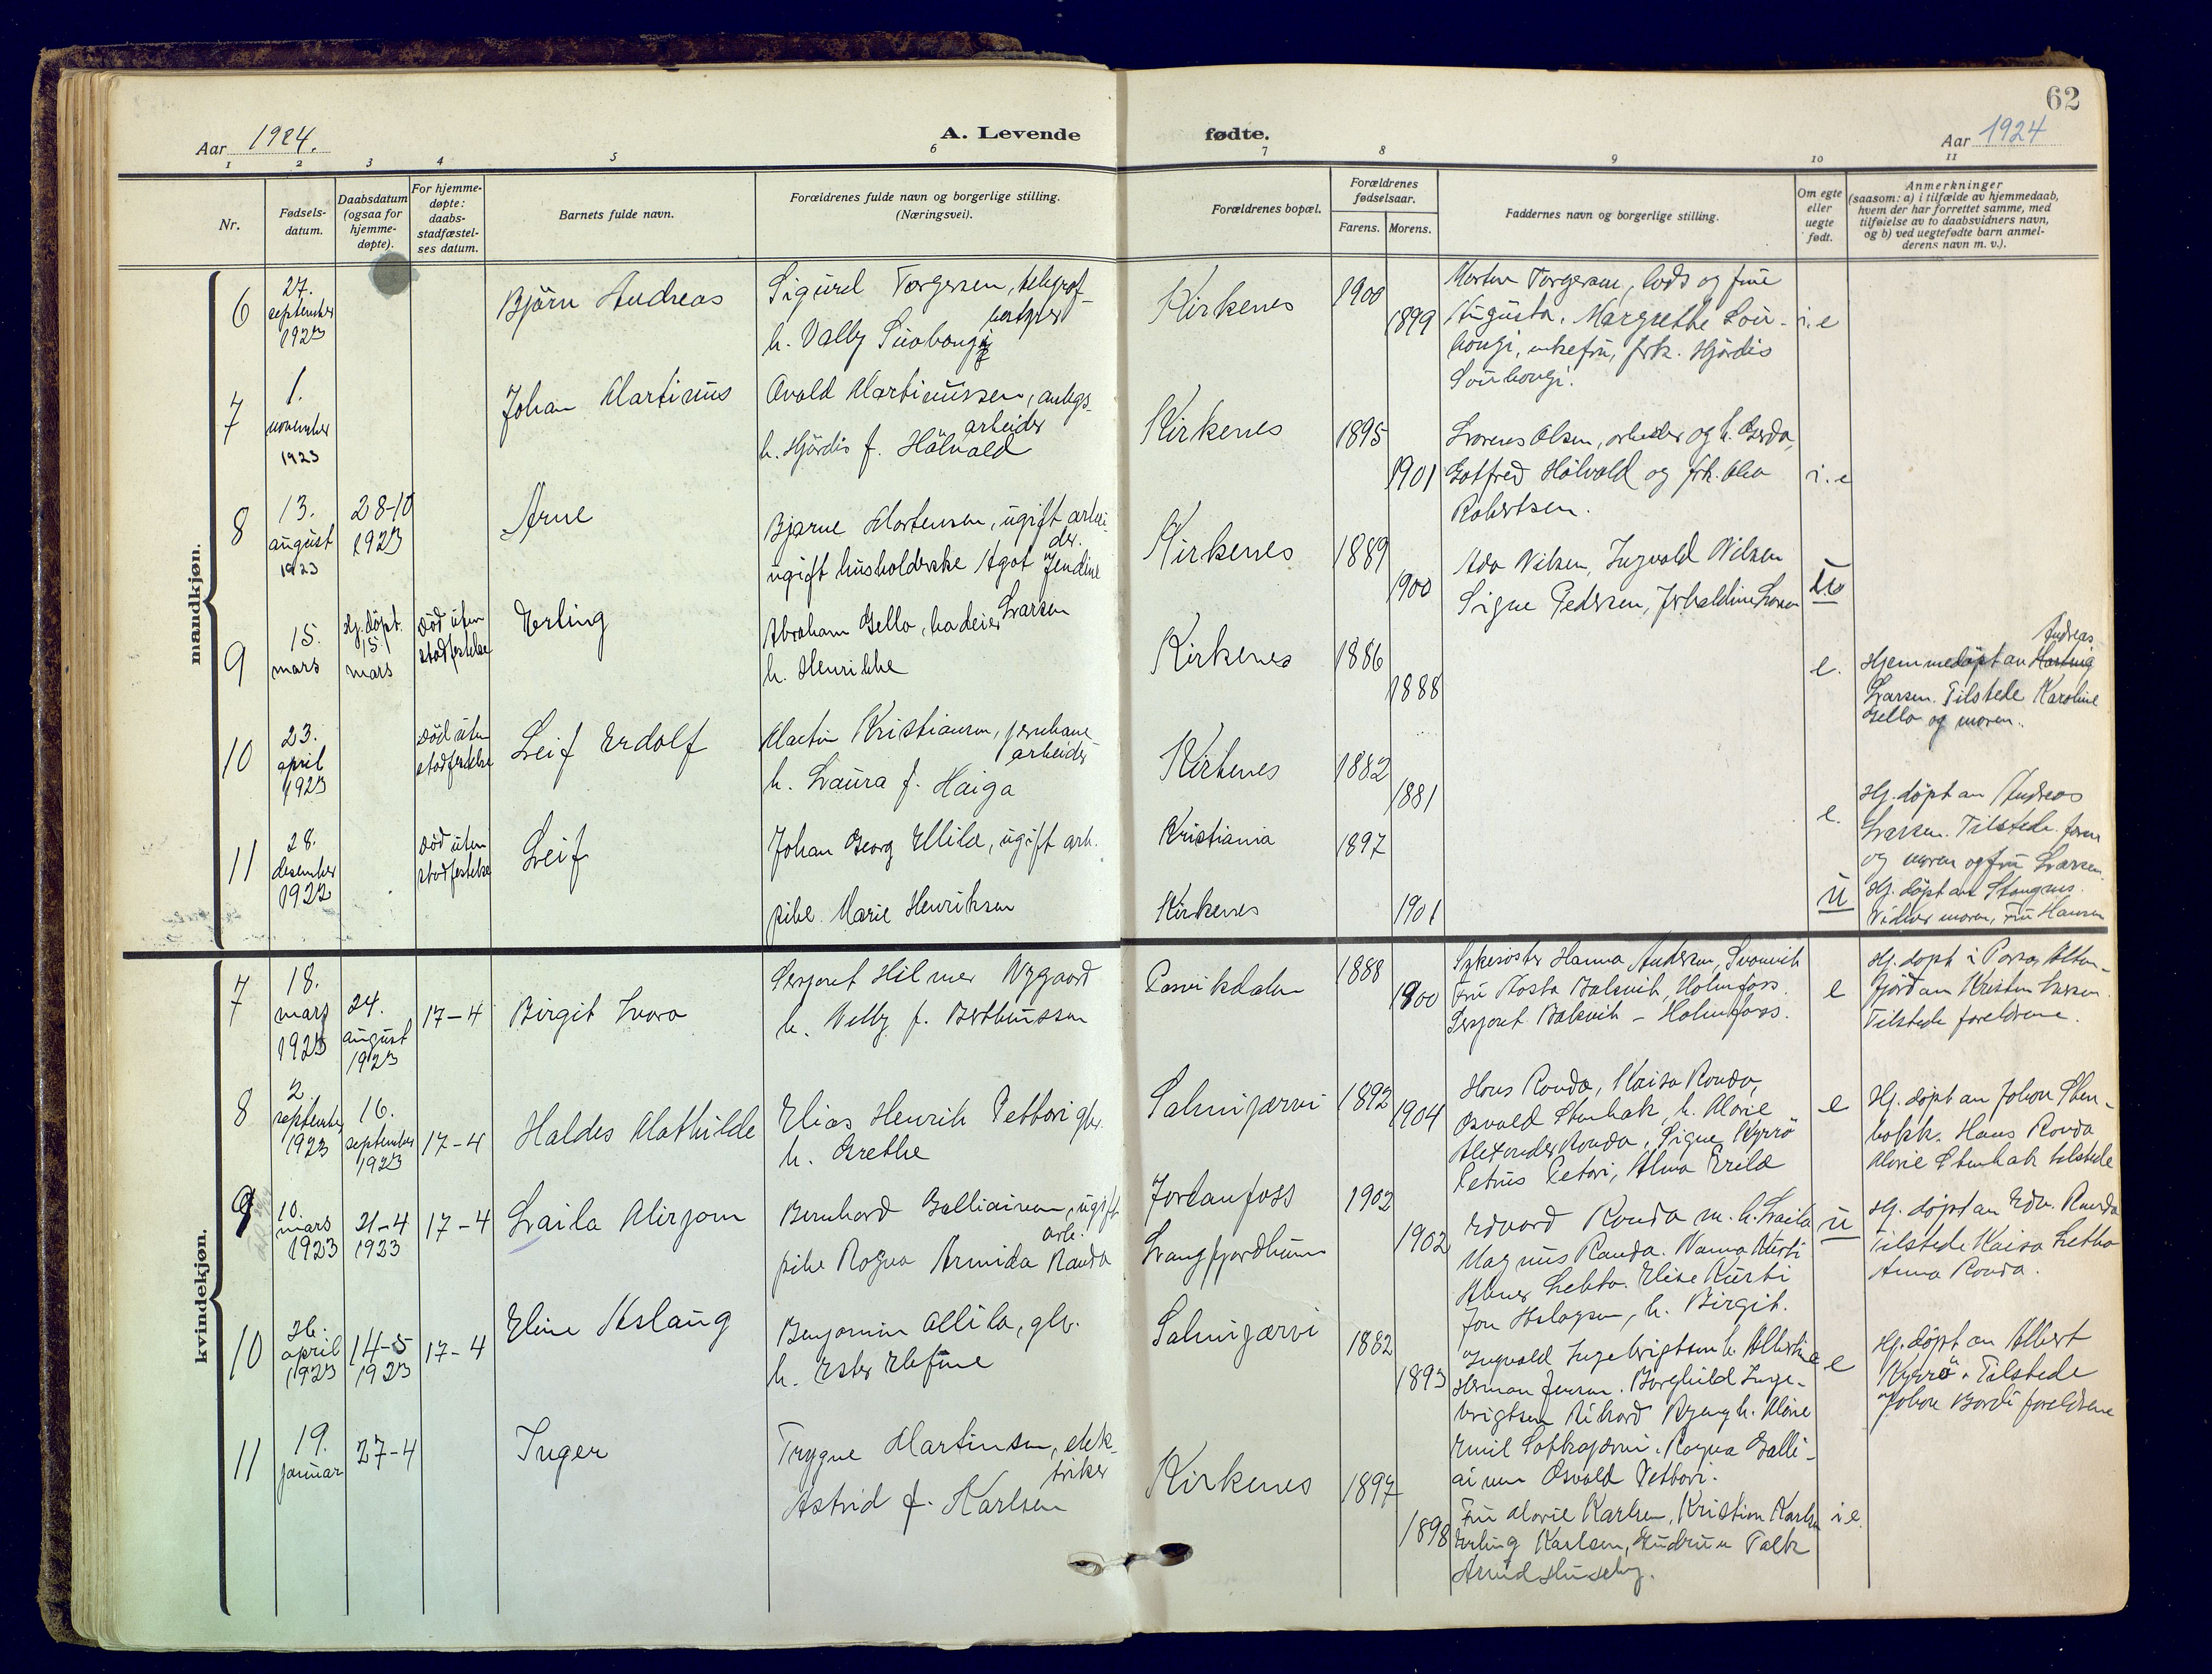 62
Aar 1924.
A. Levende
fødte.
Aar 1924
1 2 3 4 5 6 7 8 9 10 11
Nr.
Fødsels-
datum.
Daabsdatum
(ogsaa for
hjemme-
døpte).
For hjemme-
døpte:
daabs-
stadfæstel-
ses datum.
Barnets fulde navn.
Forældrenes fulde navn og borgerlige stilling.
(Næringsvei).
Forældrenes bopæl.
Forældrenes
fødselsaar.
Farens. Morens.
Faddernes navn og borgerlige stilling.
Om egte
eller
uegte
født.
Anmerkninger
(saasom: a) i tilfælde av hjemmedaab,
hvem der har forrettet samme, med
tilføielse av to daabsvidners navn,
og b) ved uegtefødte barn anmel-
derens navn m. v.).
mandkjøn.
6
27.
september
1923
Björn Andreas
Sigurd Torgersen, telegraf-
h. Valby
Kirkenes
1900
1899
Morten Torgersen, lods og frue
Augusta. Margrethe Sou-
hougi, enkefru, frk. Hjördis
Souhougi.
i. e
7
1.
november
1923
Johan Martinus
Avald Martinussen, anlegs-
arbeider
h. Hjördis f. Hölvold
Kirkenes
1895
1901
Lorens Olsen, arbeider og h. Gerda,
Gotfred Hölvold og frk. Olea
Robertsen.
i. e
8
13.
august
1923
28-10
1923
Arne
Bjarne Mortensen, ugift arbei-
der.
ugift husholderske Agot Jendine
Larsen
Kirkenes
1889
1900
Ada Nilsen, Ingvald Nilsen
Signe Pedersen,
u
9
15.
mars
Hj. döpt.
15.
mars
död uten
stadfestelse
Erling
Abraham Gello, havdeier
h. Henrikke
Kirkenes
1886
1888
e.
Andreas
Hjemmedöpt av Hartvig
Larsen. Tilstede Karoline
Gello og moren.
10
23.
april
1923
död uten
stadfestelse
Leif Erdolf
Martin Kristiansen, jernbane
arbeider
h. Laura f. Haiga
Kirkenes
1882
1881
e.
Hj. döpt av Andreas
Larsen. Tilstede. faren
og moren og fru Larsen.
11
28.
desember
1922
död uten
stadfestelse
Leif
Johan Georg Ellila, ugift arb.
pike Marie Henriksen
Kristiania
Kirkenes
1897
1901
u
Hj. döpt av
Vidner moren, Fru Hansen
kvindekjøn.
7
18.
mars
1923
24.
august
1923
17-4
Birgit Lovra
Sersjant Hilmer Nygaard
h. Velby f. Berthinssen
Pasvikdalen
1888
1900
Sykesöster Hanna Andersen, Svanvik
Fru Rosta Balsvik, Holmfoss.
Sersjant Balsvik - Holmfoss.
e
Hj. döpt i Porsa, Alten-
fjord av Kristin Larsen.
Tilstede foreldrene.
8
2.
september
1923
16.
september
1923
17-4
Haldes Mathilde
Elias Henrik Pettari gbr.
h. Grethe
Salmijærvi
1892
1904
Hans Rouda, Kaisa Rouda,
Osvald Stenbak, h. Marie
Alexander Rouda. Signe Kyrrö
Petrus Petari, Alma Erila
e
Hj. döpt av Johan Sten-
bakk. Hans Rouda
Marie Stenbak tilstede
9
10.
mars
1923
21-4
1923
17-4
Laila Mirjam
Bernhard Galliainen, ugift
arb.
pike Ragna Armida Rauda
Jordanfoss
Langfjordbunn
1902
1902
Edvard Rouda m. h. Laila
Magnus Rauda. Nanna Kurti
Abner Lehto. Elise Kurti
Jon Aslagsen, h. Birgit.
u
Hj. döpt av Edv. Rauda
Tilstede Kaisa Letho
Anna Rouda.
10
26.
april
1923
14-5
1923
17-4
Eline Aslaug
Benjamin Allila, gbr.
h. Ester Elefine
Salmijærvi
1882
1893
Ingvald Ingebrigtsen h. Albertine
Herman Jensen. Borghild Inge-
brigtsen Rikard Ryeng h. Marie
Emil Sottrajærvi. Ragna Galli-
ainen Osvald Pettari.
e
Hj. döpt av Albert
Kyrrö. Tilstede
Johan Bordi foreldrene
11
19.
januar
27-4
Inger
Trygve Martinsen, elek-
triker
Astrid f. Karlsen
Kirkenes
1897
1898
Fru Marie Karlsen, Kristian Karlsen
Erling Karlsen, Gudrun Falk
Arvid Huseby.
i e.